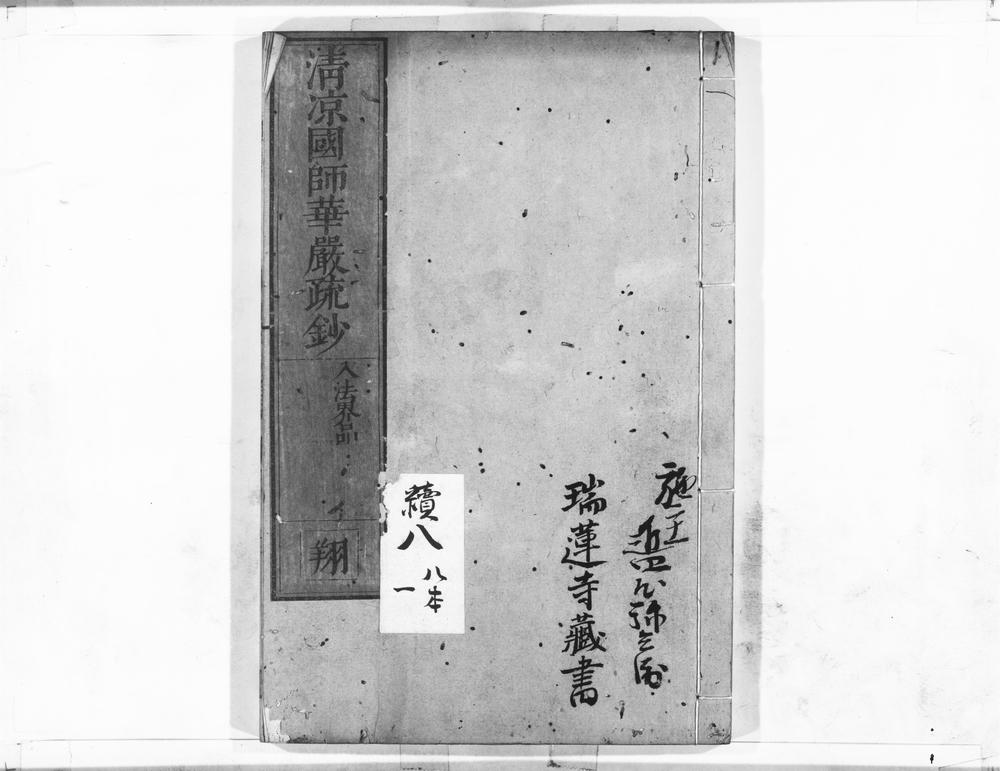 施主
瑞蓮寺藏書
清凉國師華嚴疏鈔
入法界品
翔
續八
八本
一